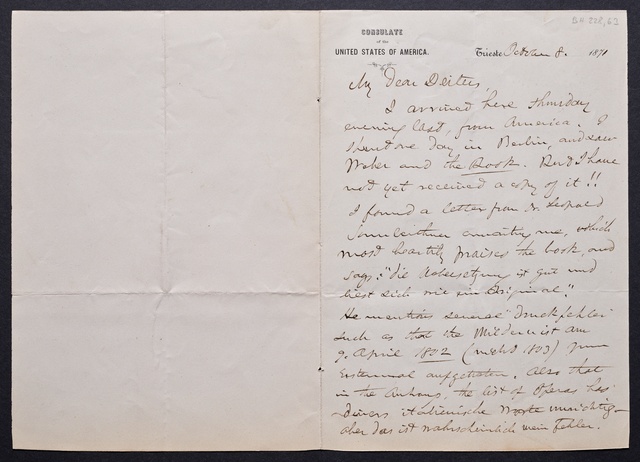 BH 228,63
CONSULATE
of the
UNITED STATES OF AMERICA.
Trieste October 8. 1871
My Dear Deiters,
I arrived here Thursday
evening last, from America. I
spent one day in Berlin, and saw
Weber and the Book. But I have
not yet received a copy of it!!
I found a letter from Dr. Leopold
Sonnleithner awaiting me, which
most heartily praises the book, and
says: "die Uebersetzung ist gut und
liest sich wie ein Original."
He mentions several Druckfehler
such as that the Milder ist am
9. April 1802 (nicht 1803) zum
Erstenmal aufgetreten. Also that
in the Anhang, the list of Operas has
divers italienische Worte unrichtig –
aber das ist wahrscheinlich mein Fehler.